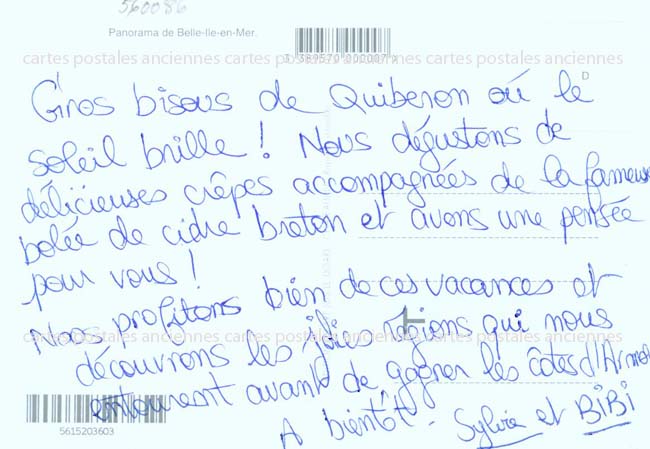 560086
Panorama de Belle-Ile-en-Mer.
cartes postales anciennes cartes postales anciennes cartes postales anciennes
Gros bisous de Quiberon où le
soleil brille ! Nous dégustons de
délicieuses crêpes accompagnées de la fameuse
bolée de cidre breton et avons une pensée
pour vous !
Nous profitons bien de ces vacances et
découvrons les jolies régions qui nous
cartes postales anciennes cartes postales anciennes cartes postales anciennes
entourent avant de gagner les côtes d'Armor
A bientôt - Sylvie et BiBi
5615203603